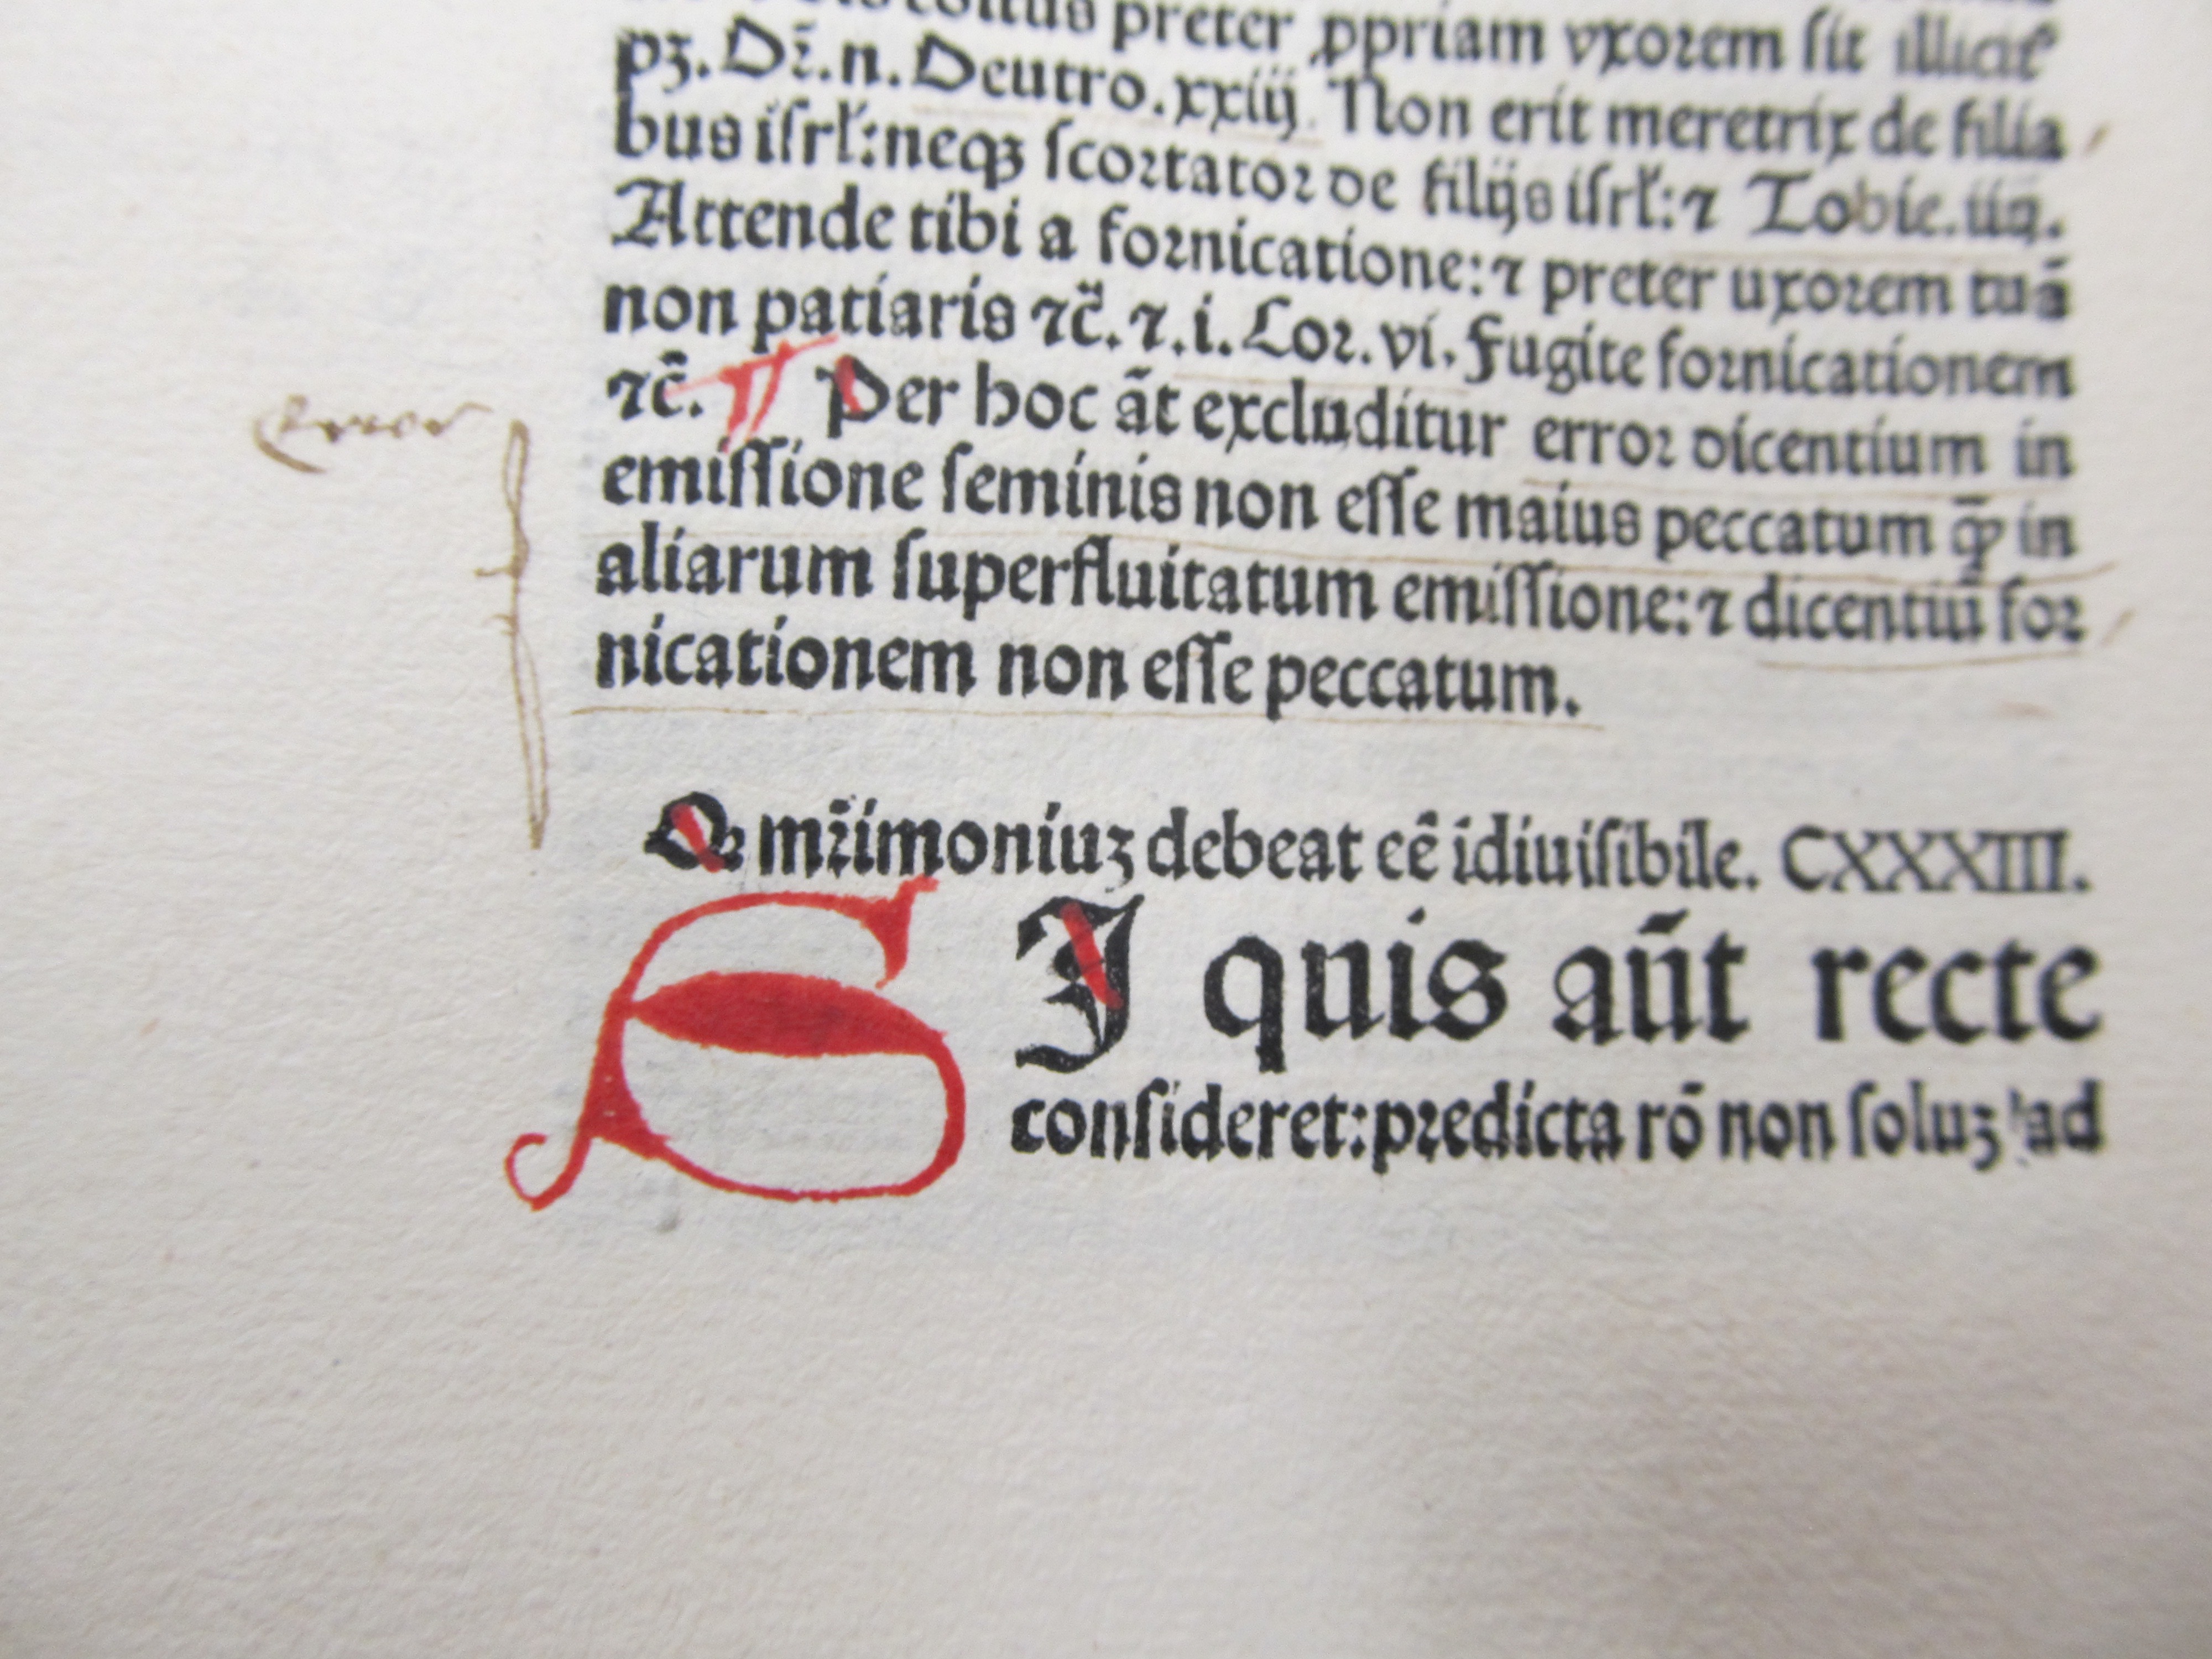 coitus preter ꝓpriam vxorem sit illicit᷒
pꝫ. Dr̄. n. Deutro. xxiij. Non erit meretrix de filia
bus isrl̄: neqꝫ scortator de filijs isrl̄: ⁊ Tobie. iiij.
Attende tibi a fornicatione: ⁊ preter uxorem tuā
non patiaris ⁊c̄. ⁊. i. Cor. vi. Fugite fornicationem
⁊c̄. ¶ Per hoc āt excluditur error dicentium in
error
emissione seminis non esse maius peccatum q̄ꝫ in
aliarum superfluitatum emissione: ⁊ dicentiū for
nicationem non esse peccatum.
Qꝫ mr̄imoniuꝫ debeat eē īdiuisibile. CXXXIII.
SI quis aūt recte
consideret: predicta rō non soluꝫ ad